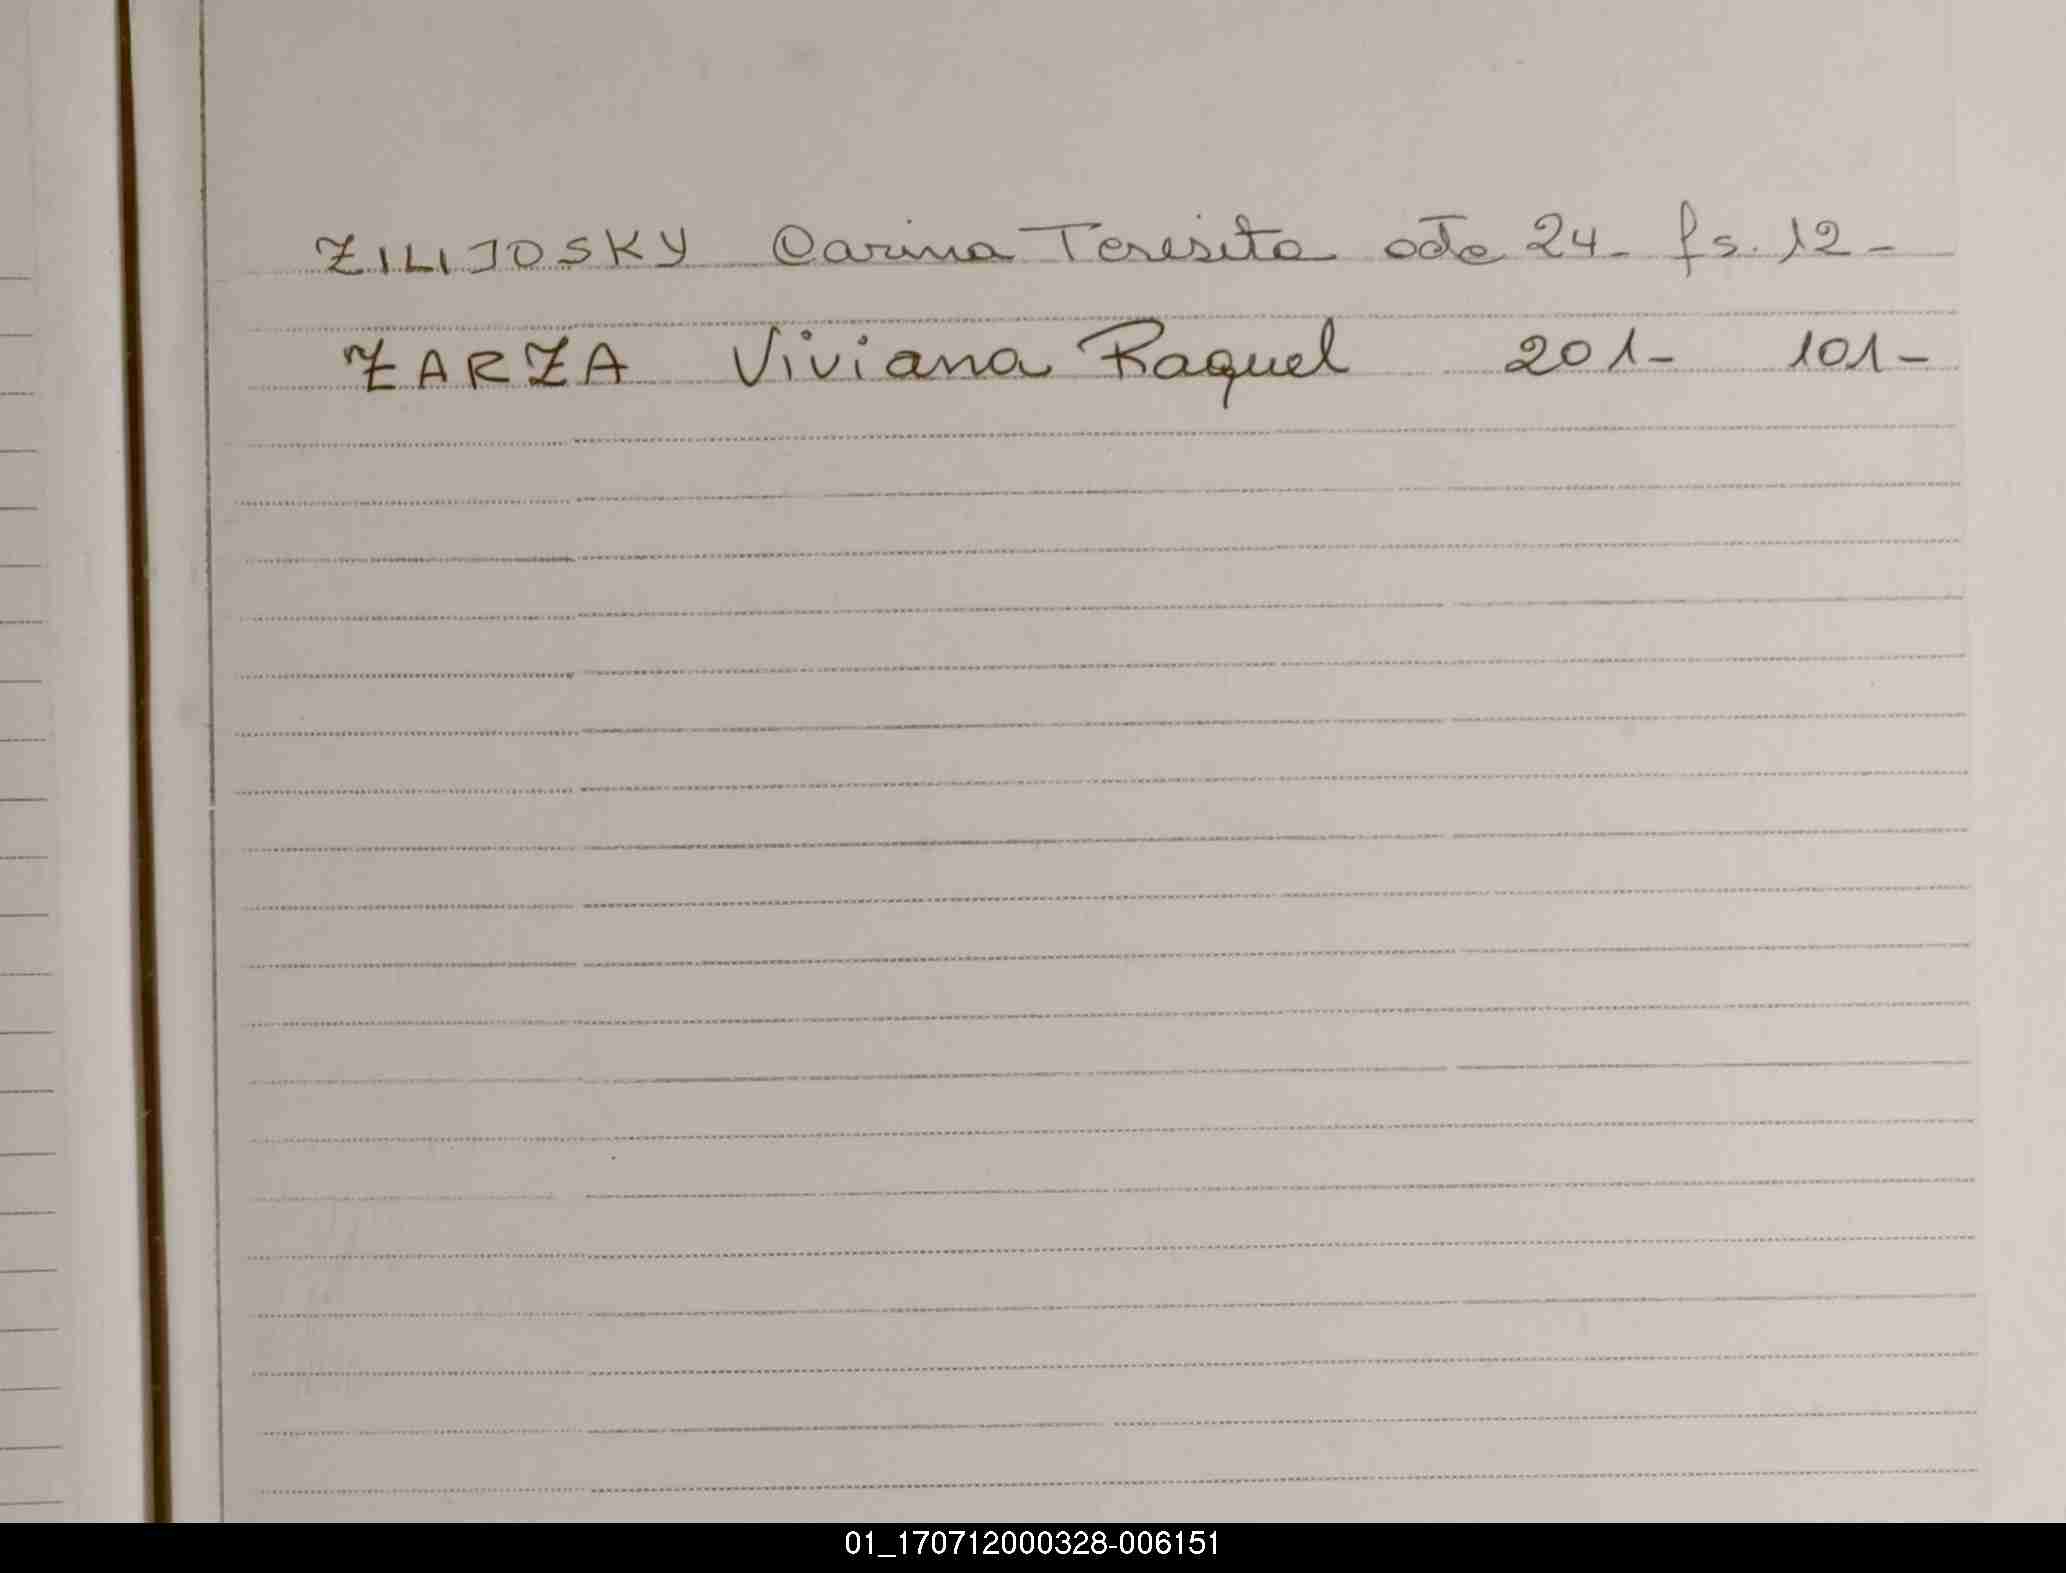 ZILIJOSKY Carina Teresita acta 24- fs. 12-
ZARZA Viviana Raquel 201- 101-
01_170712000328-006151